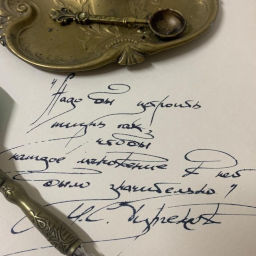 "Надо бы устроить
жизнь так,
чтобы
каждое мгновение в ней
было значительно"
И.С. Тургенев